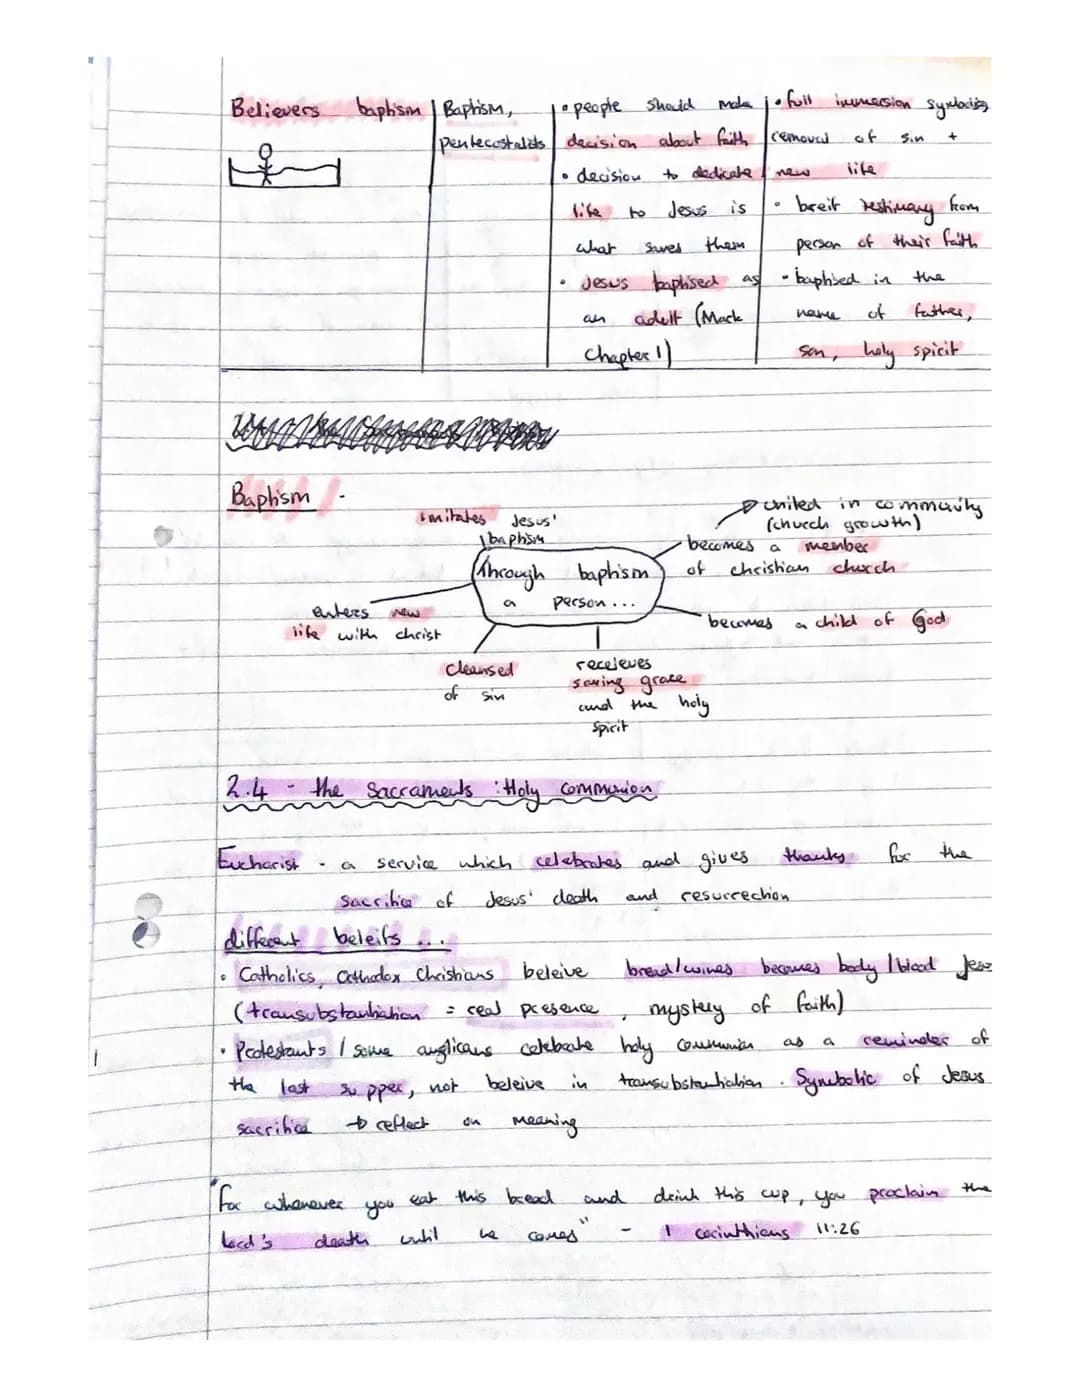 Believers baptism
Baptism,
pentecostalists
• people should make
decision about faith
• decision to dedicate
life to Jesus is
what saves them
• Jesus baptised as
an adult (Mark
Chapter 1)
• full immersion symbolising
removal of sin +
new life
• breif testimony from
person of their faith
• baptised in the
name of father,
son, holy spirit
Baptism -
imitates Jesus'
baptism
through baptism
a person...
united in community
(church growth)
becomes a member
of christian church
becomes a child of God
enters new
life with christ
cleansed
of sin
receieves
saving grace
and the holy
spirit
2.4 - the Sacraments : Holy communion
Eucharist - a service which celebrates and gives thanks for the
sacrifice of Jesus' death and resurrection
different beleifs ...
• Catholics, orthodox Christians beleive bread/wines becomes body / blood
(transubstantiation = real presence, mystery of faith)
• Protestants / some anglicans celebrate holy communion as a reminder of
the last supper, not beleive in transubstantiation. Symbolic of Jesus
sacrifice → reflect on meaning
"For whenever you eat this bread and drink this cup, you proclaim the
lord's death until he comes" - 1 corinthians 11:26